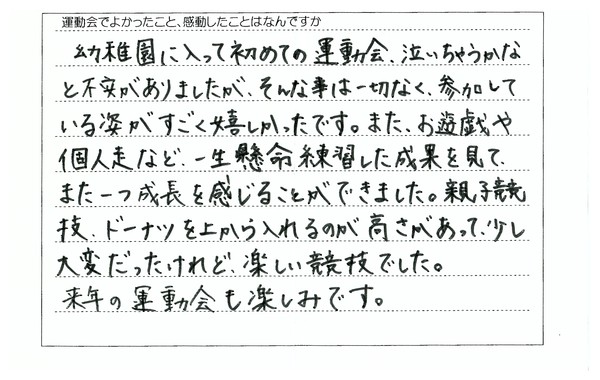 運動会でよかったこと、感動したことはなんですか
幼稚園に入って初めての運動会、泣いちゃうかな
と不安がありましたが、そんな事は一切なく、参加して
いる姿がすごく嬉しかったです。また、お遊戯や
個人走など、一生懸命練習した成果を見て、
また一つ成長を感じることができました。親子競
技、ドーナツを上から入れるのが高さがあって、少し
大変だったけれど、楽しい競技でした。
来年の運動会も楽しみです。